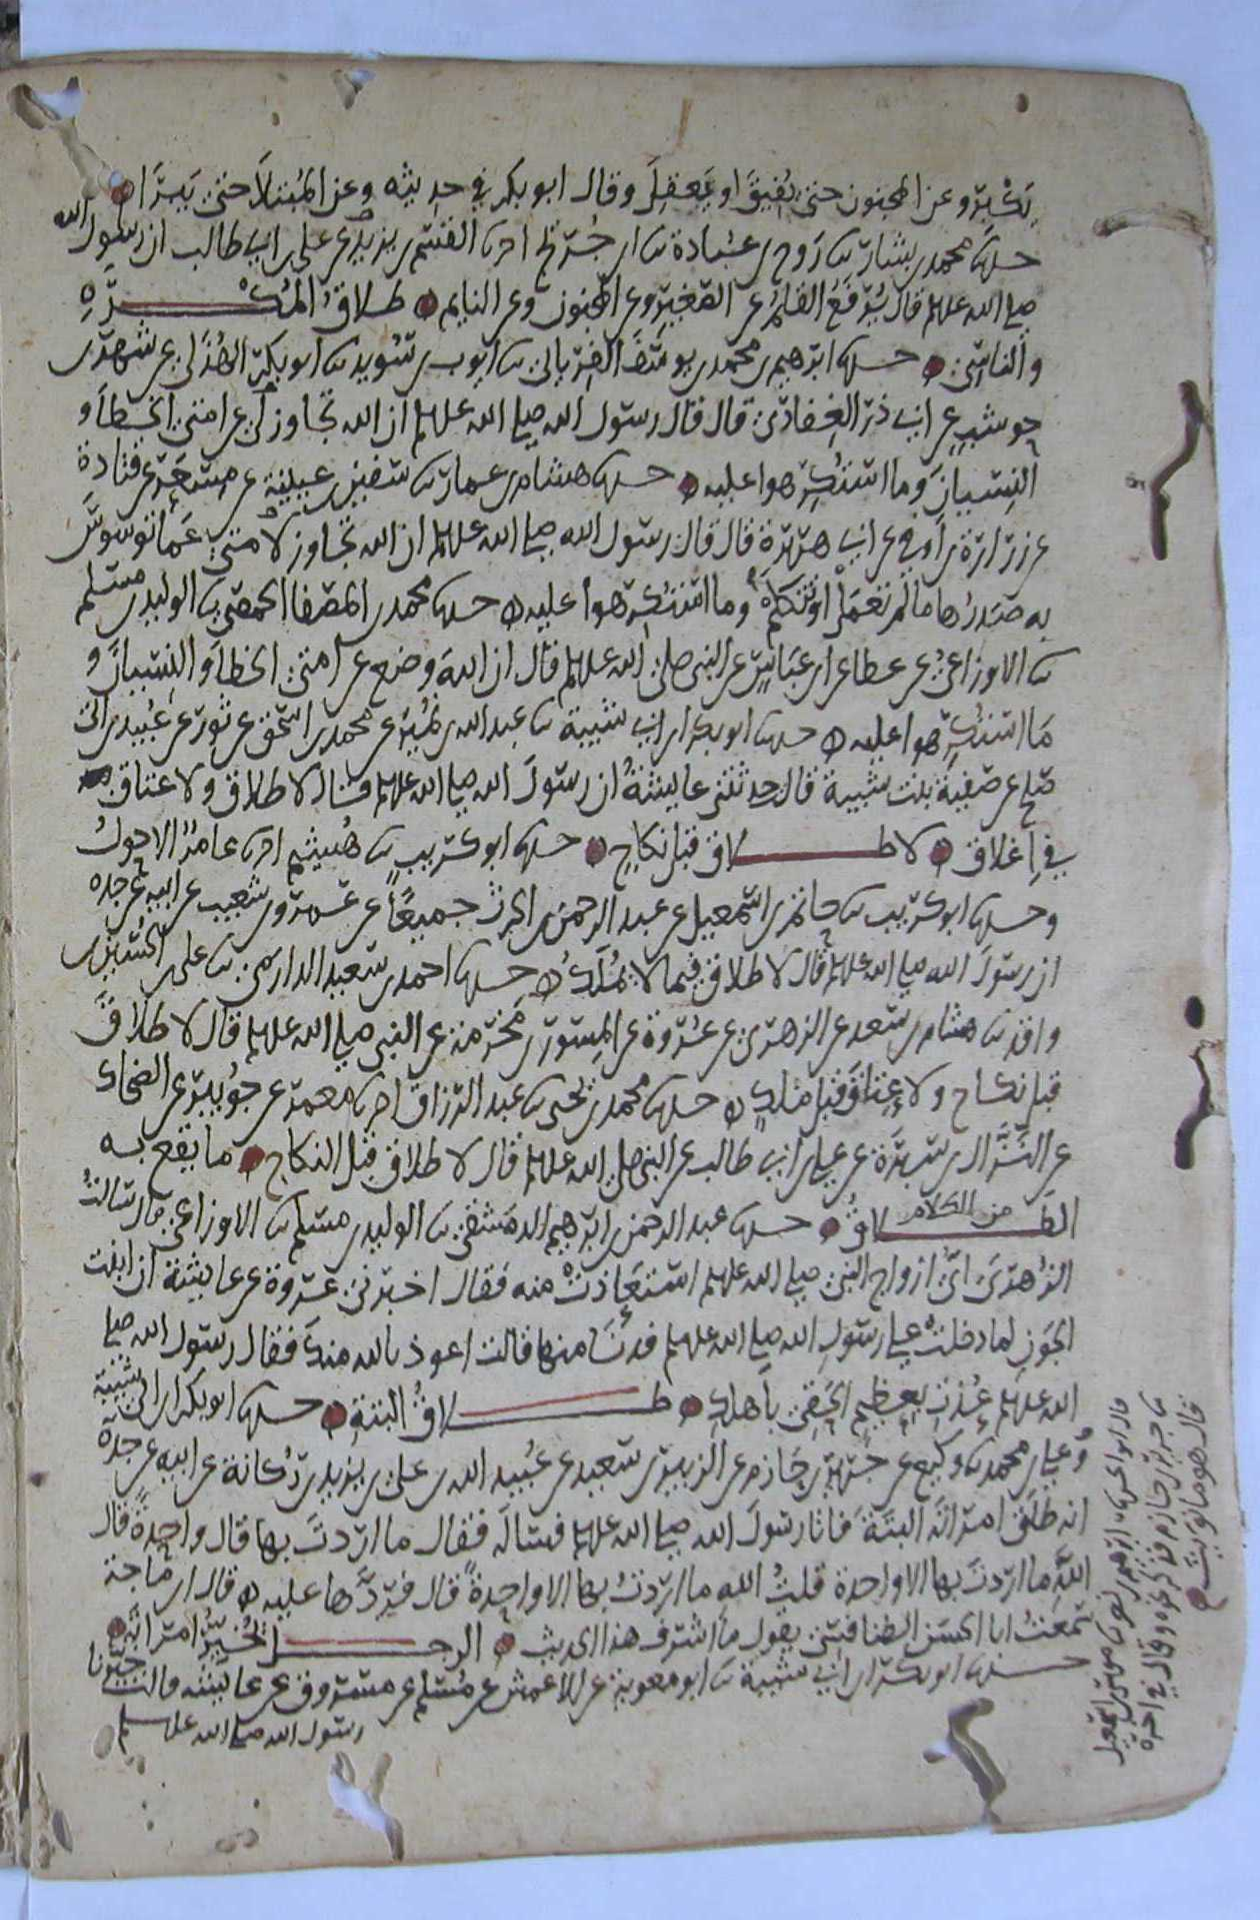 يكبر وعن المجنون حتى يفيق او يعقل وقال ابو بكر في حديثه وعن المبتلا حتى يبرا
حدثنا محمد بن بشار ثنا روح بن عبادة ثنا ابن جريج اخبرنا القسم بن يزيد عن علي بن ابي طالب ان رسول الله
صلى الله عليه وسلم قال يرفع القلم عن الصغير وعن المجنون وعن النايم طلاق المكره
والناسي حدثنا ابرهيم بن محمد بن يوسف الفريابي ثنا ايوب بن سويد ثنا ابو بكر الهذلي عن شهر بن
حوشب عن ابي ذر الغفاري قال قال رسول الله صلى الله عليه وسلم ان الله تجاوز لي عن امتي الخطأ و
النسيان وما استكرهوا عليه حدثنا هشام بن عمار ثنا سفين بن عيينة عن مسعر عن قتادة
عن زرارة بن اوفى عن ابي هريرة قال قال رسول الله صلى الله عليه وسلم ان الله تجاوز لامتي عما توسوس
به صدرها ما لم تعمل او تتكلم وما استكرهوا عليه حدثنا محمد بن المصفا الحمصي ثنا الوليد بن مسلم
ثنا الاوزاعي عن عطا عن ابن عباس عن النبي صلى الله عليه وسلم قال ان الله وضع عن امتي الخطأ والنسيان و
ما استكرهوا عليه حدثنا ابو بكر ابن ابي شيبة ثنا عبد الله بن نمير عن محمد بن اسحق عن ثور عن عبيد بن ابي
صلح عن صفية بنت شيبة قالت حدثتني عايشة ان رسول الله صلى الله عليه وسلم قال لا طلاق ولا عتاق
في اغلاق لا طلاق قبل نكاح حدثنا ابو كريب ثنا هشيم اخبرنا عامر الاحول
وحدثنا ابو كريب ثنا حاتم بن اسمعيل عن عبد الرحمن بن الحرث جميعا عن عمرو بن شعيب عن ابيه عن جده
ان رسول الله صلى الله عليه وسلم قال لا طلاق فيما لا يملك حدثنا احمد بن سعيد الدارمي ثنا علي بن الحسين بن
واقد ثنا هشام بن سعد عن الزهري عن عروة عن المسور بن مخرمة عن النبي صلى الله عليه وسلم قال لا طلاق
قبل نكاح ولا عتاق قبل ملك حدثنا محمد بن يحيى ثنا عبد الرزاق اخبرنا معمر عن جويبر عن الضحاك
عن النزال بن سبرة عن علي بن ابي طالب عن النبي صلى الله عليه وسلم قال لا طلاق قبل النكاح ما يقع به
الطلاق من الكلام حدثنا عبد الرحمن بن ابرهيم الدمشقي ثنا الوليد بن مسلم ثنا الاوزاعي قال سالت
الزهري اي ازواج النبي صلى الله عليه وسلم استعاذت منه فقال اخبرني عروة عن عايشة ان ابنت
الجون لما دخلت على رسول الله صلى الله عليه وسلم فدنا منها قالت اعوذ بالله منك فقال رسول الله صلى
الله عليه وسلم عذت بعظيم الحقي باهلك طلاق البتة حدثنا ابو بكر ابن ابي شيبة
وعلي بن محمد ثنا وكيع عن جرير بن حازم عن الزبير بن سعيد عن عبيد الله بن علي بن يزيد بن ركانة عن ابيه عن جده
انه طلق امراته البتة فاتا رسول الله صلى الله عليه وسلم فساله فقال ما اردت بها قال واحدة قال
الله ما اردت بها الا واحدة قلت الله ما اردت بها الا واحدة قال فردها عليه قال ابن ماجة
سمعت ابا الحسن الطنافسي يقول ما اشرف هذا الحديث الرجل يخير امراته
حدثنا ابو بكر ابن ابي شيبة ثنا ابو معوية عن الاعمش عن مسلم عن مسروق عن عايشة قالت خيرنا
رسول الله صلى الله عليه وسلم
ثنا جرير بن حازم فذكر نحوه وقال في اخره
قال هو ما نويت